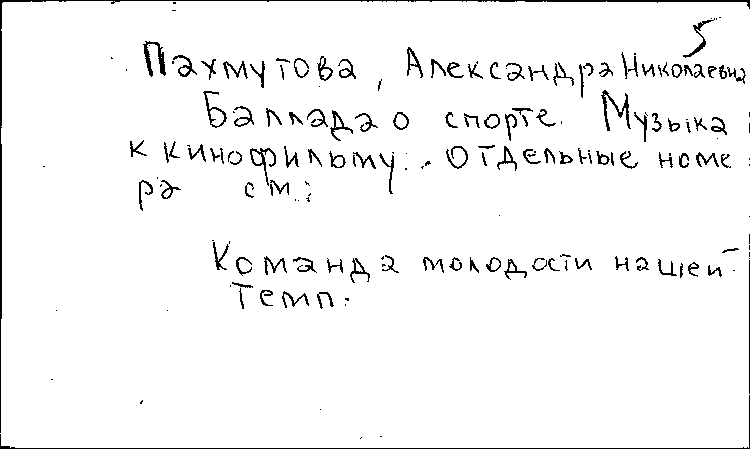 5
Пахмутова, Александра Николаевна
Баллада о спорте. Музыка
к кинофильму. Отдельные номе
ра см.:
Команда молодости нашей
Темп.